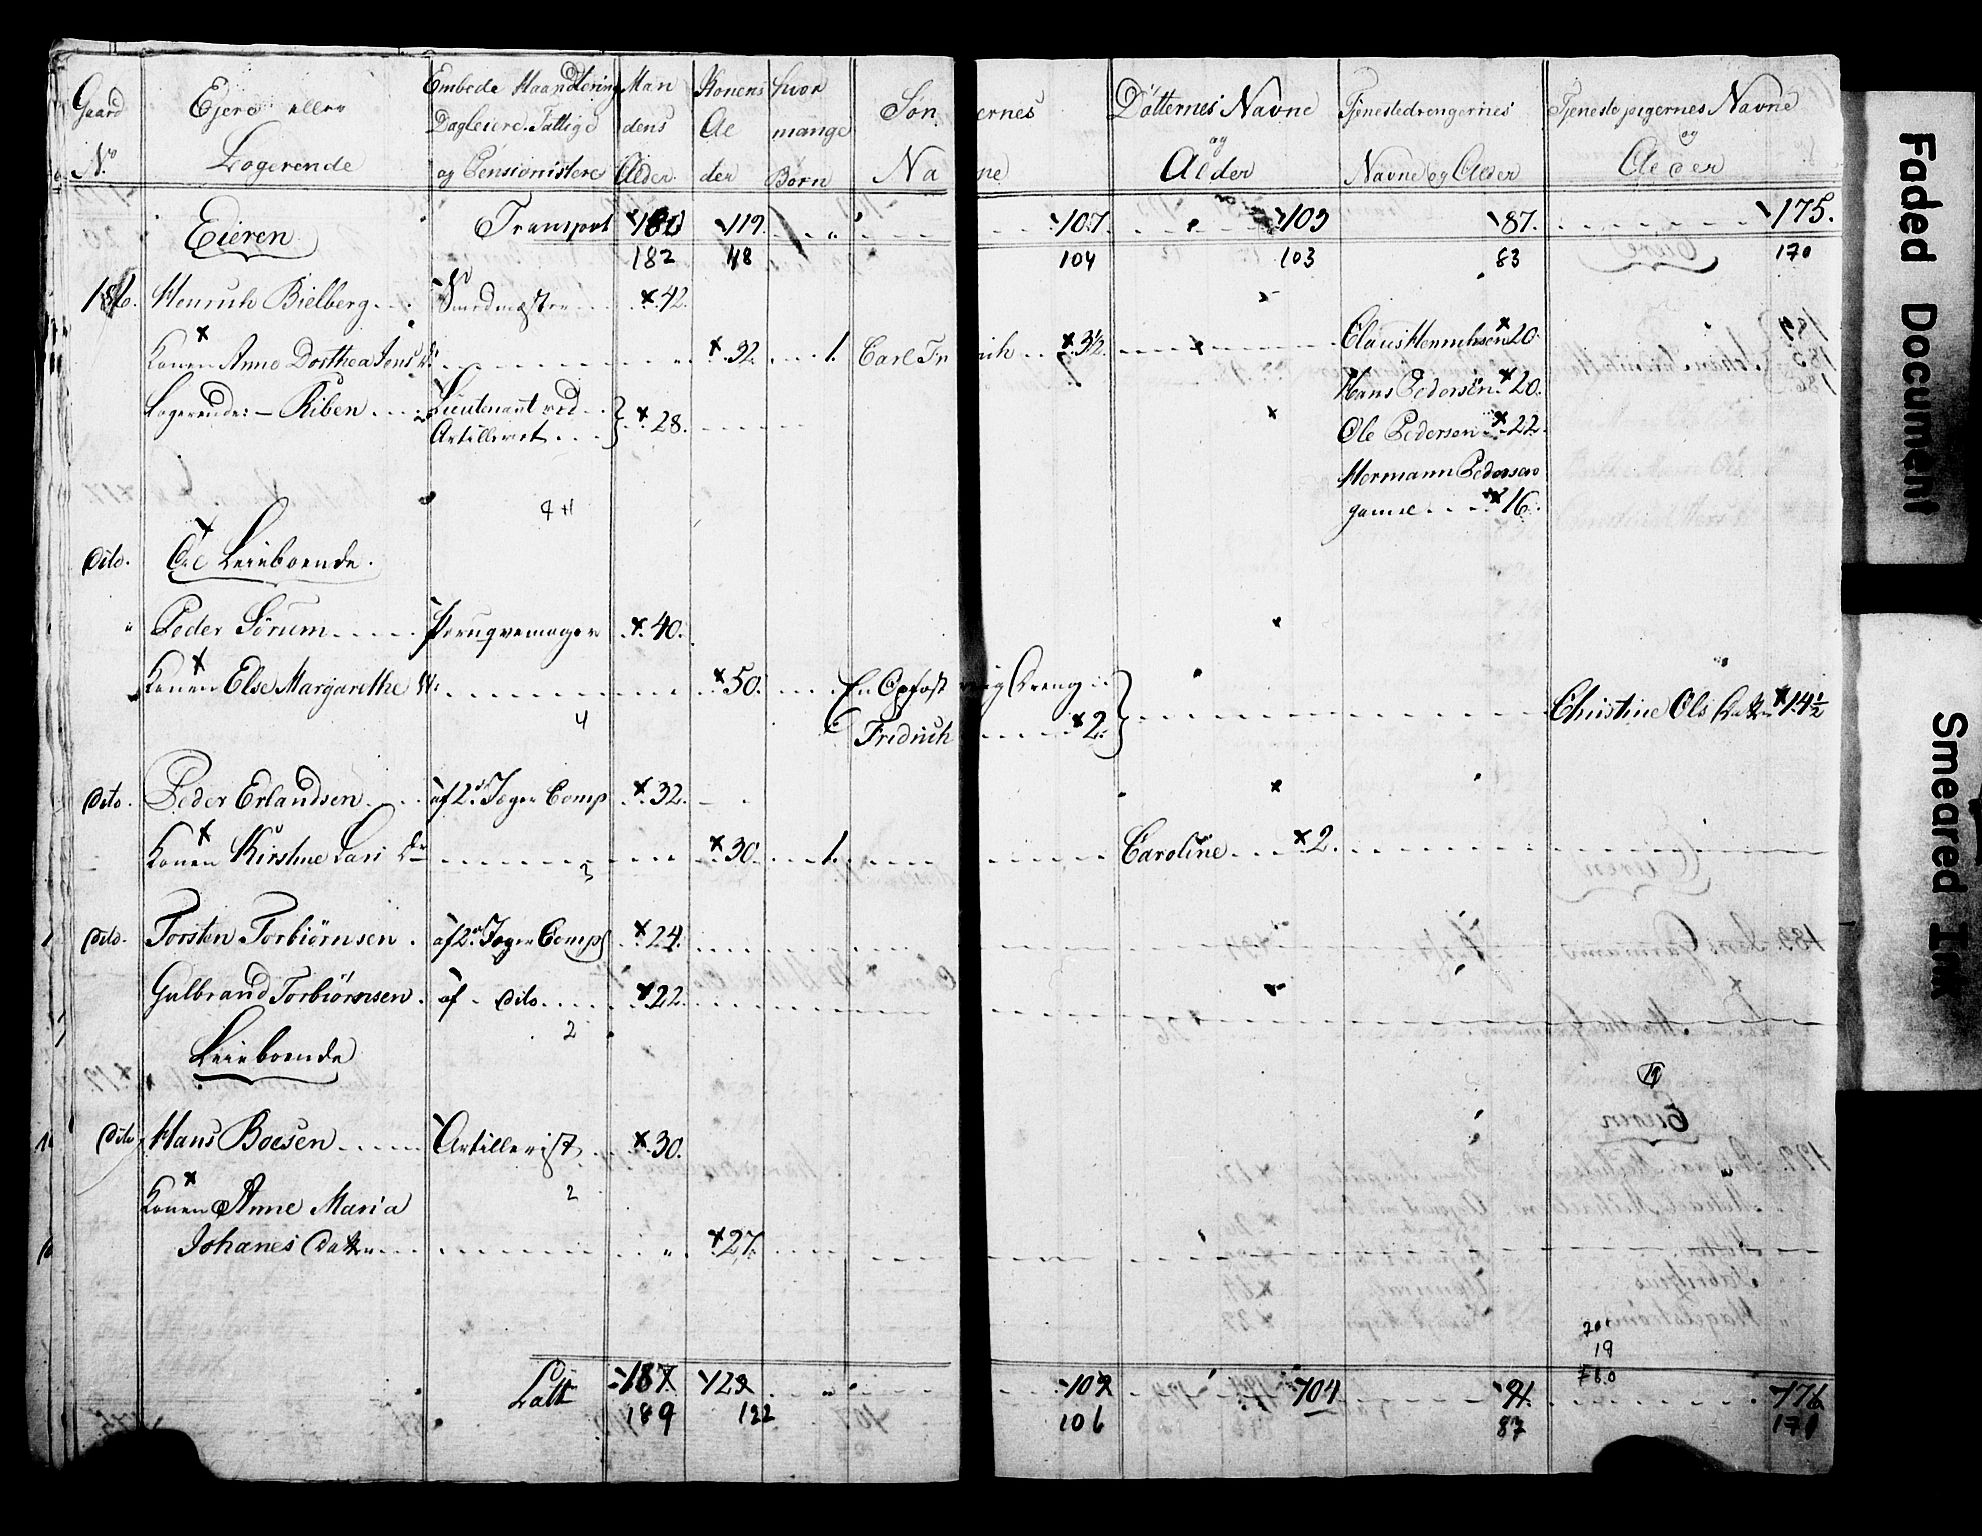 Gaard No
Ejere eller Logerende
Embede Haandtering Dagleiere Fattige og Pensionistere
Mandens Alder
Konens Alder
hvor mange Börn
Sön ernes Na ne
Dötternes Navne og Alder
Tjenestedrengernes Navne og Alder
Tjeneste pigernes Navne og Alder
Eieren Transport 119. 107. 103 87. 175.
182 118 104 103 83 170
186. Henrich Bielberg Smedmester 42.
Konen Anne Dorthea Jens D: 32. 1. Carl Fr rich 3½ Claus Henrichsen 20.
Logerende: – Riben Lieutenant ved Artilleriet 28. Hans Pedersen 20.
Ole Pedersen 22.
Hermann Pedersen
16.
Dito. Leieboende.
" Peder Sörum Peruqvemager 40.
Konen Else Margarethe 50. En Opfost ring Dreng
4 Fridrich 2. Christine Ols Datter 14½
Dito. Peder Erlandsen af 2. Jæger Comp 32.
Konen Kirstine Lars D 30. 1. Caroline 2.
3
Dito. Torsten Torbiörnsen af 2. Jæger Comp 24.
Gulbrand Torbiörnsen af Dito 22.
2
Leieboende
Dito Hans Boesen Artillerist 30.
Konen Anne Maria 2
Johanes Datter 27.
20
19
Latt 187 122 104 91. 176
189 122 106 87 171
Faded Document
Smeared Ink